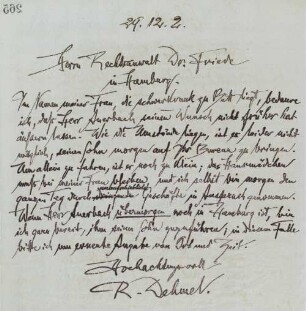 29.12.2.
Herrn Rechtsanwalt Dr. Friede
in Hamburg.
Im Namen meiner Frau, die schwerkrank zu Bett liegt, bedaure
ich, daß Herr Auerbach seinen Wunsch nicht früher hat
äußern lassen. Wie die Umstände liegen, ist es leider nicht
möglich, seinen Sohn morgen auf Ihr Bureau zu bringen.
Um allein zu fahren, ist er noch zu klein; das Hausmädchen
muß bei meiner Frau bleiben, und ich selbst bin morgen den
ganzen Tag durch unaufschiebbare Geschäfte in Anspruch genommen.
Wenn Herr Auerbach übermorgen noch in Hamburg ist, bin
ich gern bereit, ihm seinen Sohn zuzuführen; in diesem Falle
bitte ich um erneute Angabe von Ort und Zeit.
Hochachtungsvoll
R. Dehmel.